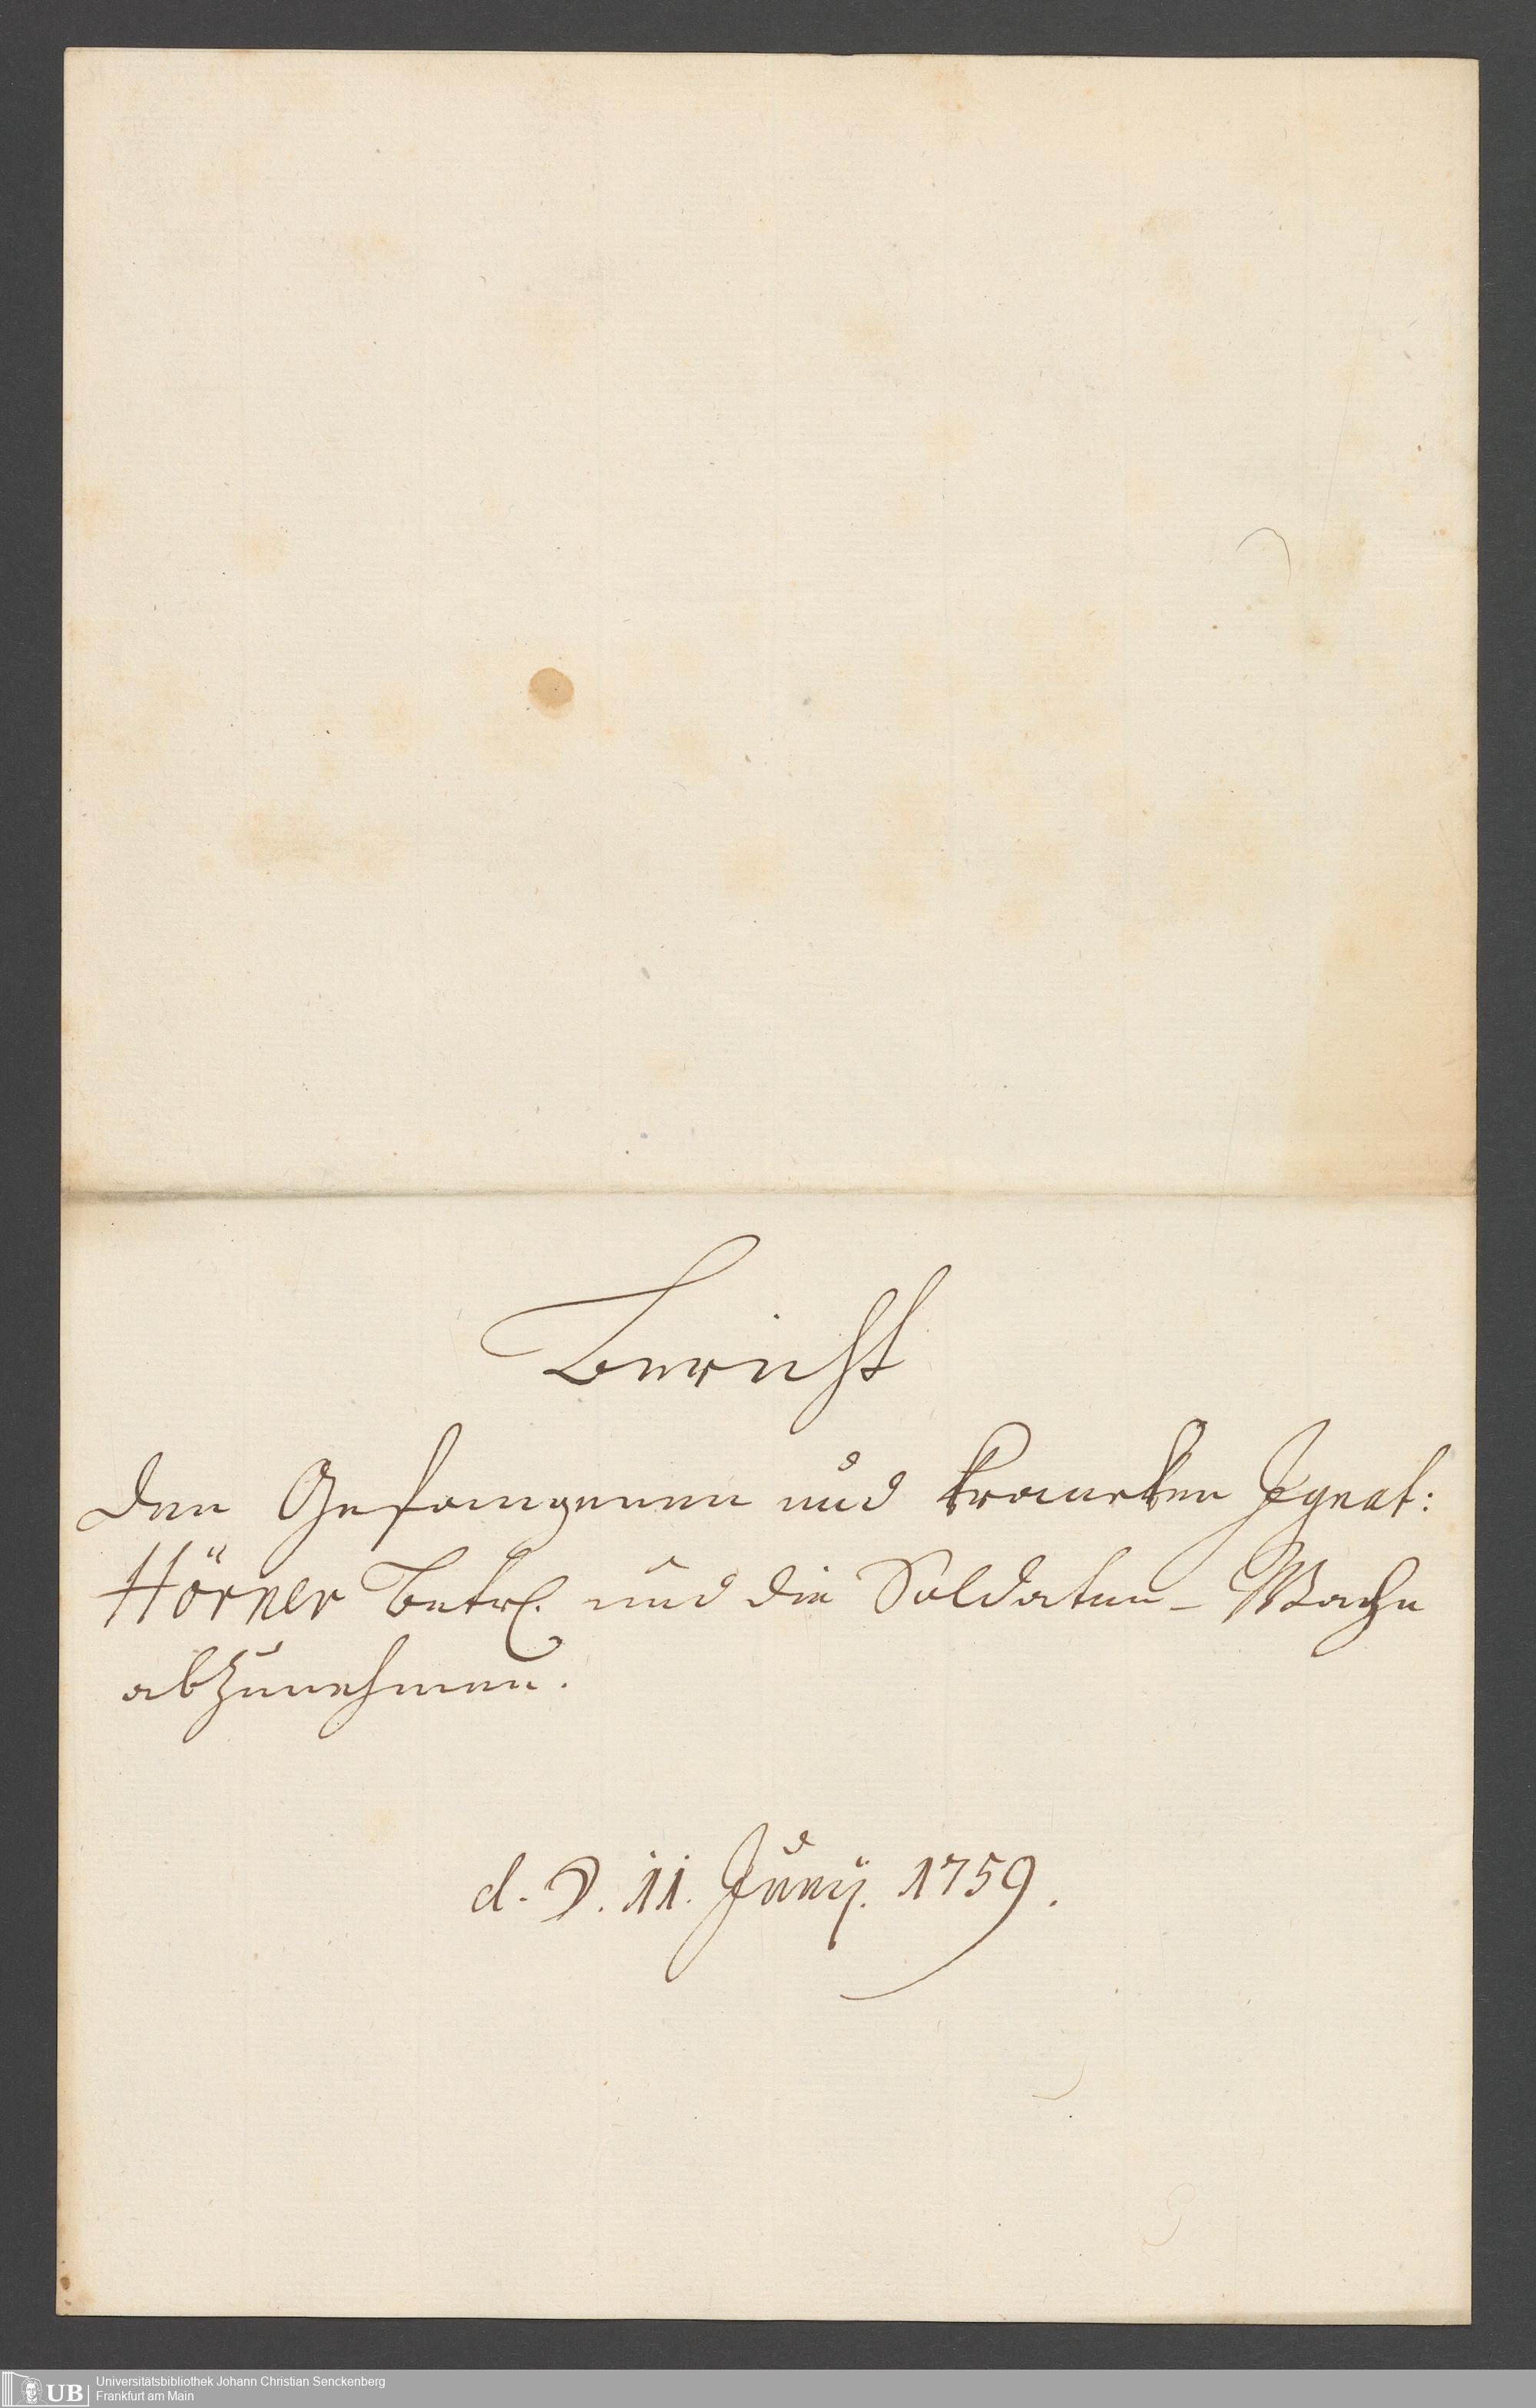 Bericht
den Gefangenen und krancken Ignat:
Hörner betr. und die Soldaten-Wache
abzunehmen.
d. D. 11. Juny. 1759.
UB Universitätsbibliothek Johann Christian Senckenberg
Frankfurt am Main